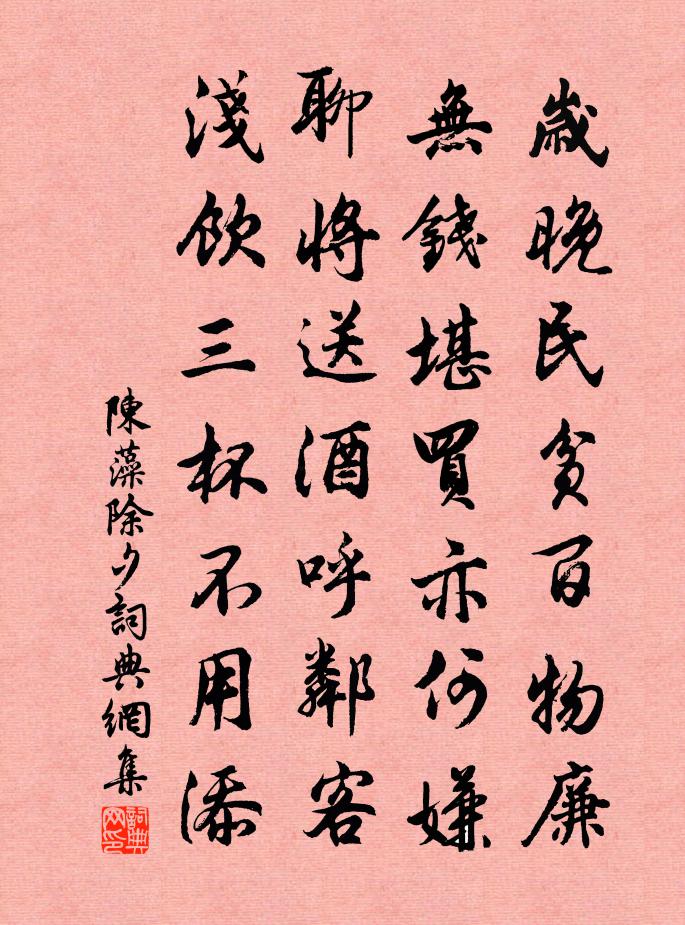 歲晚民貧百物廉
無錢堪買亦何嫌
聊將送酒呼鄰客
淺飲三杯不用添
陳藻除夕詞典網集
詞典网印